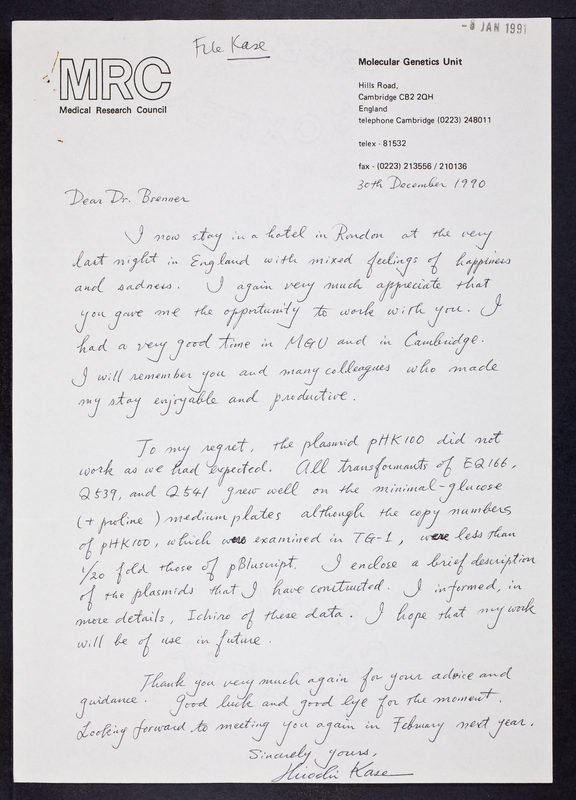 - 3 JAN 1991
File Kase
MRC
Medical Research Council
Molecular Genetics Unit
Hills Road,
Cambridge CB2 2QH
England
telephone Cambridge (0223) 248011
telex - 81532
fax - (0223) 213556 / 210136
30th December 1990
Dear Dr. Brenner
I now stay in a hotel in Rondon at the very
last night in England with mixed feelings of happiness
and sadness. I again very much appreciate that
you gave me the opportunity to work with you. I
had a very good time in MGU and in Cambridge.
I will remember you and many colleagues who made
my stay enjoyable and productive.
To my regret, the plasmid pHK100 did not
work as we had expected. All transformants of EQ166,
Q539, and Q541 grew well on the minimal-glucose
(+ proline) medium plates although the copy numbers
of pHK100, which were examined in TG-1, were less than
1/20 fold those of pBluscript. I enclose a brief description
of the plasmids that I have constructed. I informed, in
more details, Ichiro of these data. I hope that my work
will be of use in future.
Thank you very much again for your advice and
guidance. Good luck and good bye for the moment.
Looking forward to meeting you again in February next year.
Sincerely yours,
Hiroshi Kase